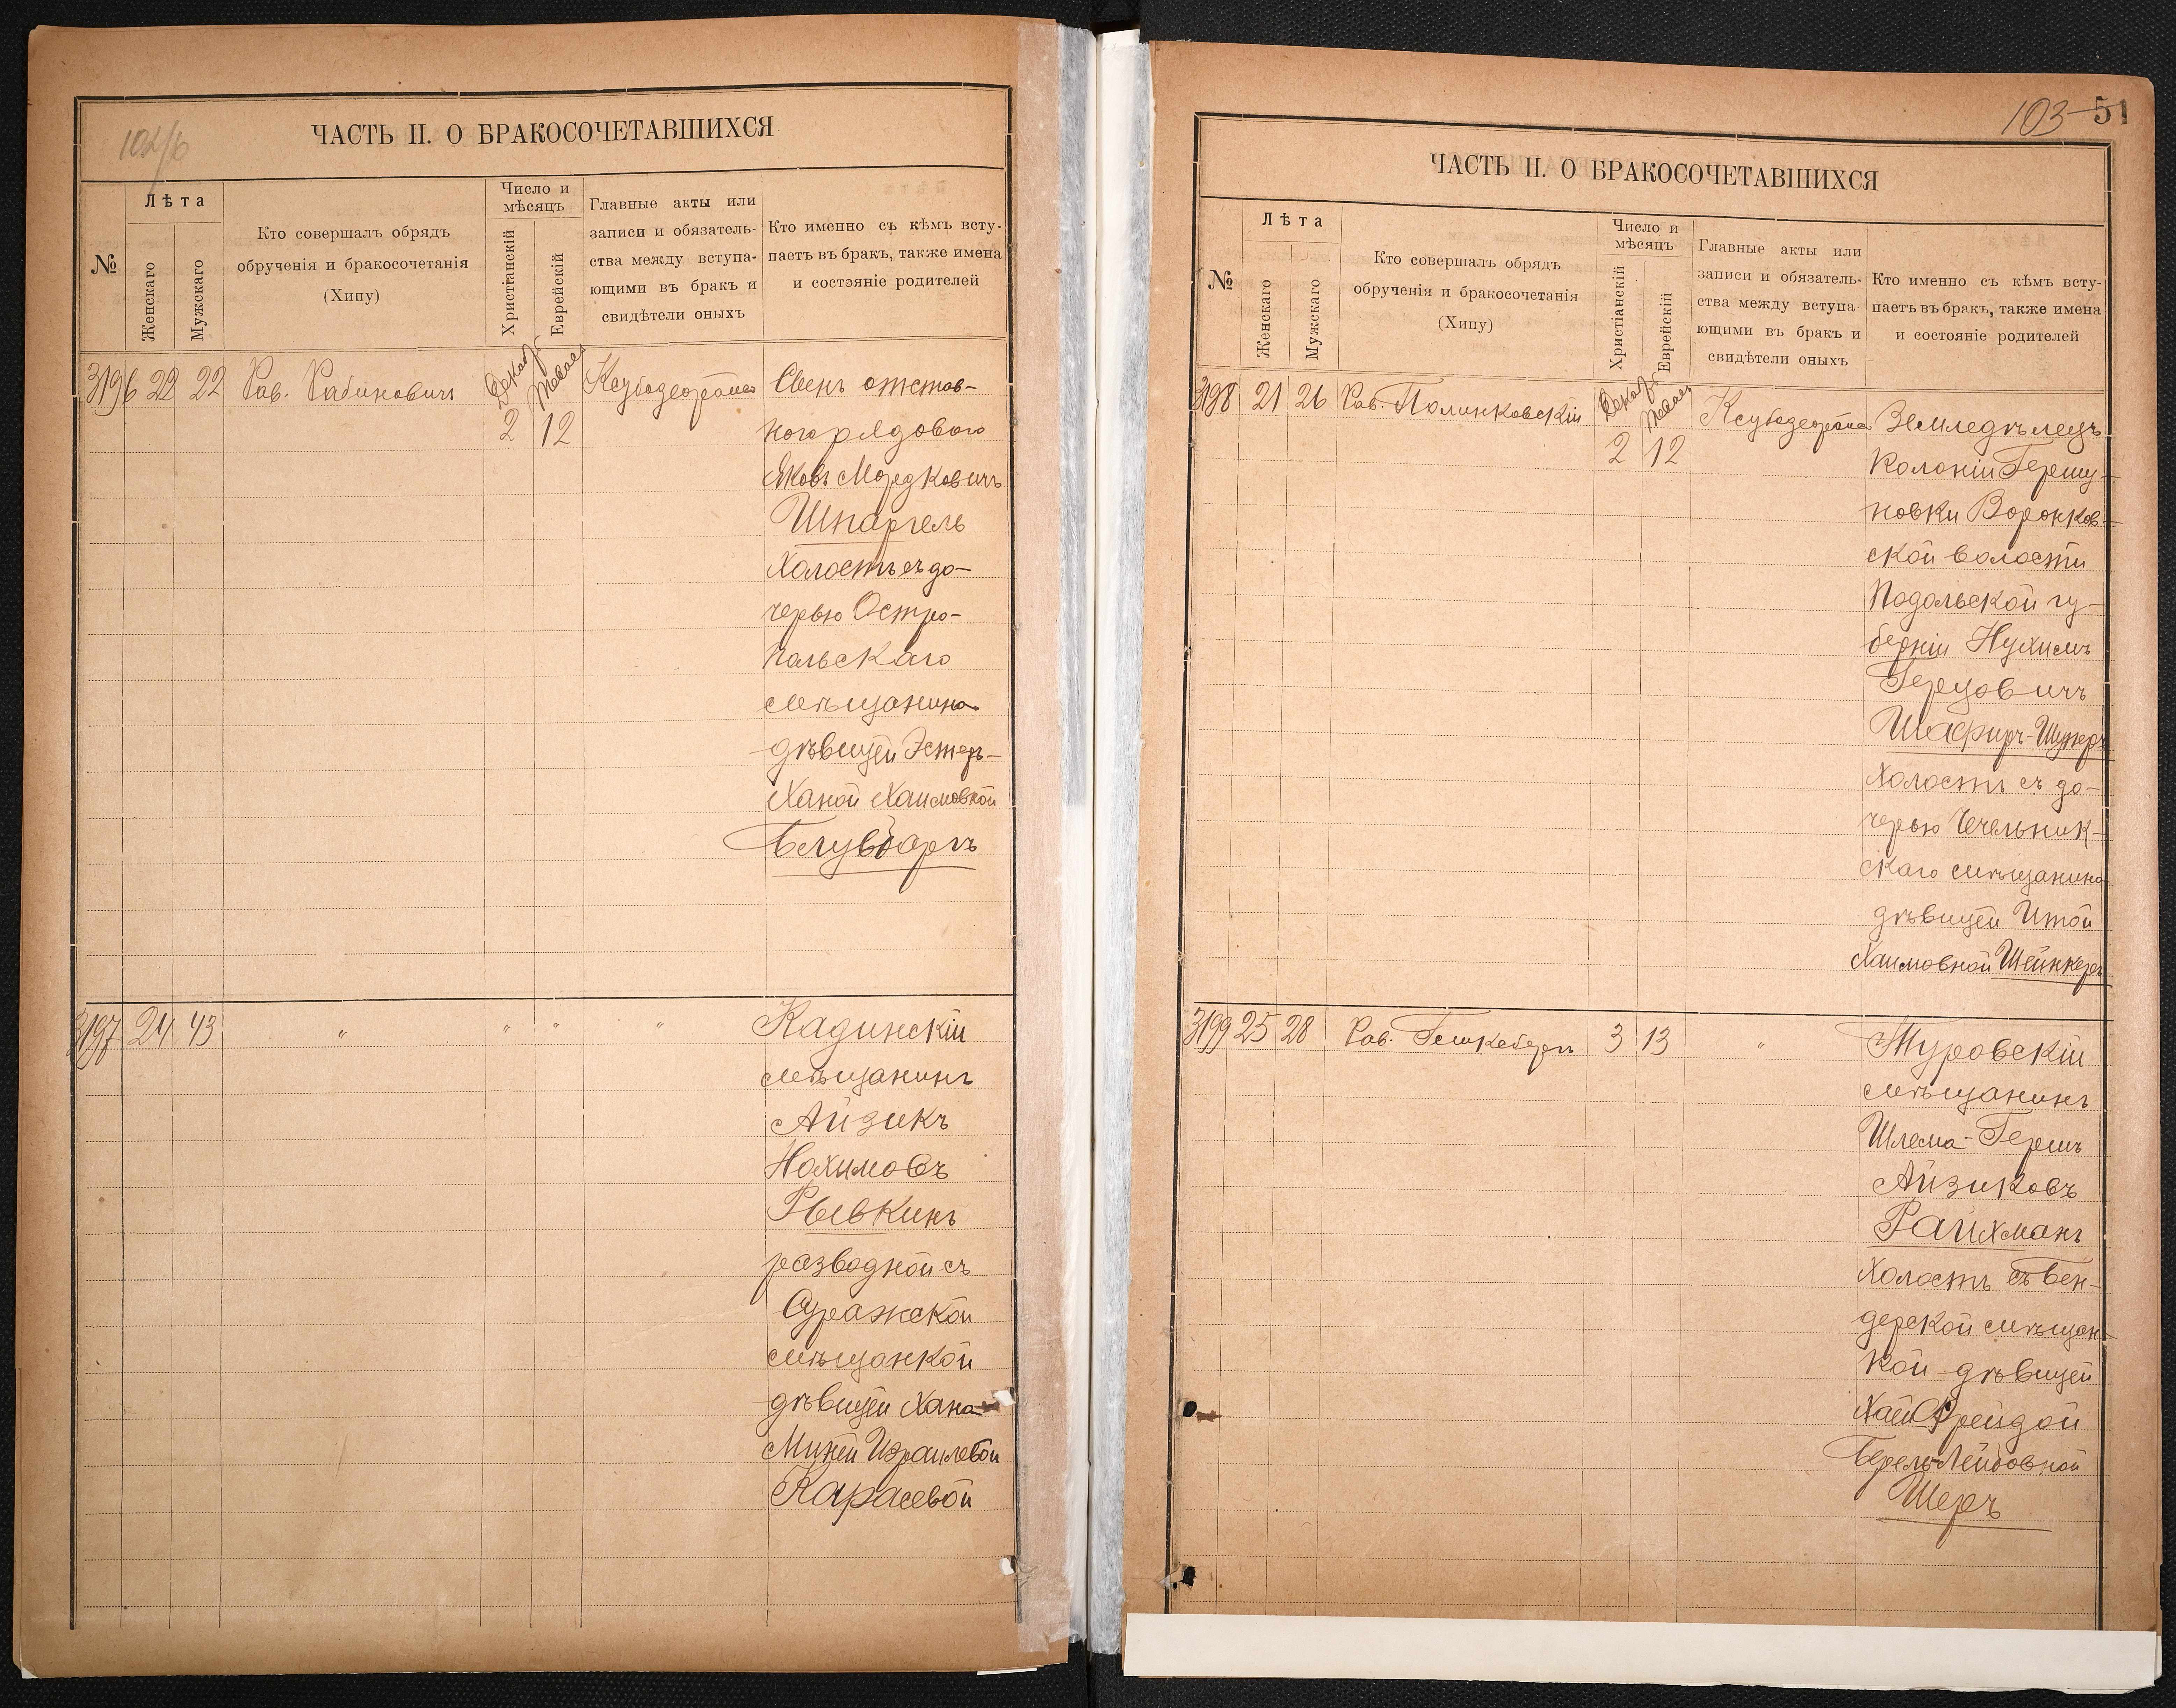 102/6
ЧАСТЬ II. О БРАКОСОЧЕТАВШИХСЯ
№
Лѣта
Женскаго
Мужскаго
Кто совершалъ обрядъ
обрученія и бракосочетанія
(Хипу)
Число и
мѣсяцъ
Христіанскій
Еврейскій
Главные акты или
записи и обязатель-
ства между вступа-
ющими въ бракъ и
свидѣтели оныхъ
Кто именно съ кѣмъ всту-
паетъ въ бракъ, также имена
и состояніе родителей
3196 22 22 Рав. Рабиновичъ Декаб. 2 12
Сынъ отстав-
ного рядового
Яковъ Мордковичъ
Шпаргель
Холостъ съ до-
черью Остро-
польскаго
мѣщанина
дѣвицей Эстеръ-
Ханой Хаимовной
Блувбаргъ
3197 24 43 " " " "
Кадинскій
мѣщанинъ
Айзикъ
Нохимовъ
Рывкинъ
разводной съ
Суражской
мѣщанкой
дѣвицей Хана
Миней Израилевой
Карасевой
103 51
ЧАСТЬ II. О БРАКОСОЧЕТАВШИХСЯ
№
Лѣта
Женскаго
Мужскаго
Кто совершалъ обрядъ
обрученія и бракосочетанія
(Хипу)
Число и
мѣсяцъ
Христіанскій
Еврейскій
Главные акты или
записи и обязатель-
ства между вступа-
ющими въ бракъ и
свидѣтели оныхъ
Кто именно съ кѣмъ всту-
паетъ въ бракъ, также имена
и состояніе родителей
3198 21 26 Рав. Полинковскій Декаб. 2 12
Земледѣлецъ
Колоніи Гершу-
новки Воронков-
ской волости
Подольской гу-
берніи Нухимъ
Герцовичъ
Шафиръ-
Холостъ съ до-
черью Чечельник-
скаго мѣщанина
дѣвицей Итой
Хаимовной Шейнкеръ
3199 25 28 Рав. 3 13 "
Туровскій
мѣщанинъ
Шлема-Гершъ
Айзиковъ
Райхманъ
Холостъ съ Бен-
дерской мѣщан-
кой дѣвицей
Хаей Фрейдой
Берель-Лейбовной
Шеръ